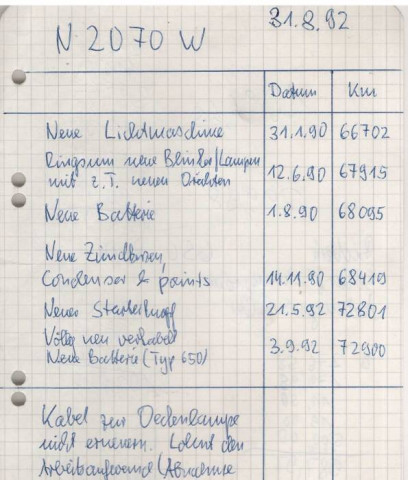 31.8.92
N 2070 W
Datum Km
Neue Lichtmaschine 31.1.90 66702
Ringsum neue Blinker/Lampen
mit z.T. neuen Drähten 12.6.90 67915
Neue Batterie 1.8.90 68095
Neue Zündkerzen,
Condenser & points 14.11.90 68419
Neuer Starterknopf 21.5.92 72801
Völlig neu verkabel
Neue Batterie (Typ 650) 3.9.92 72900
Kabel zur Deckenlampe
nicht erneuern. Lohnt den
Arbeitsaufwand (Abnahme